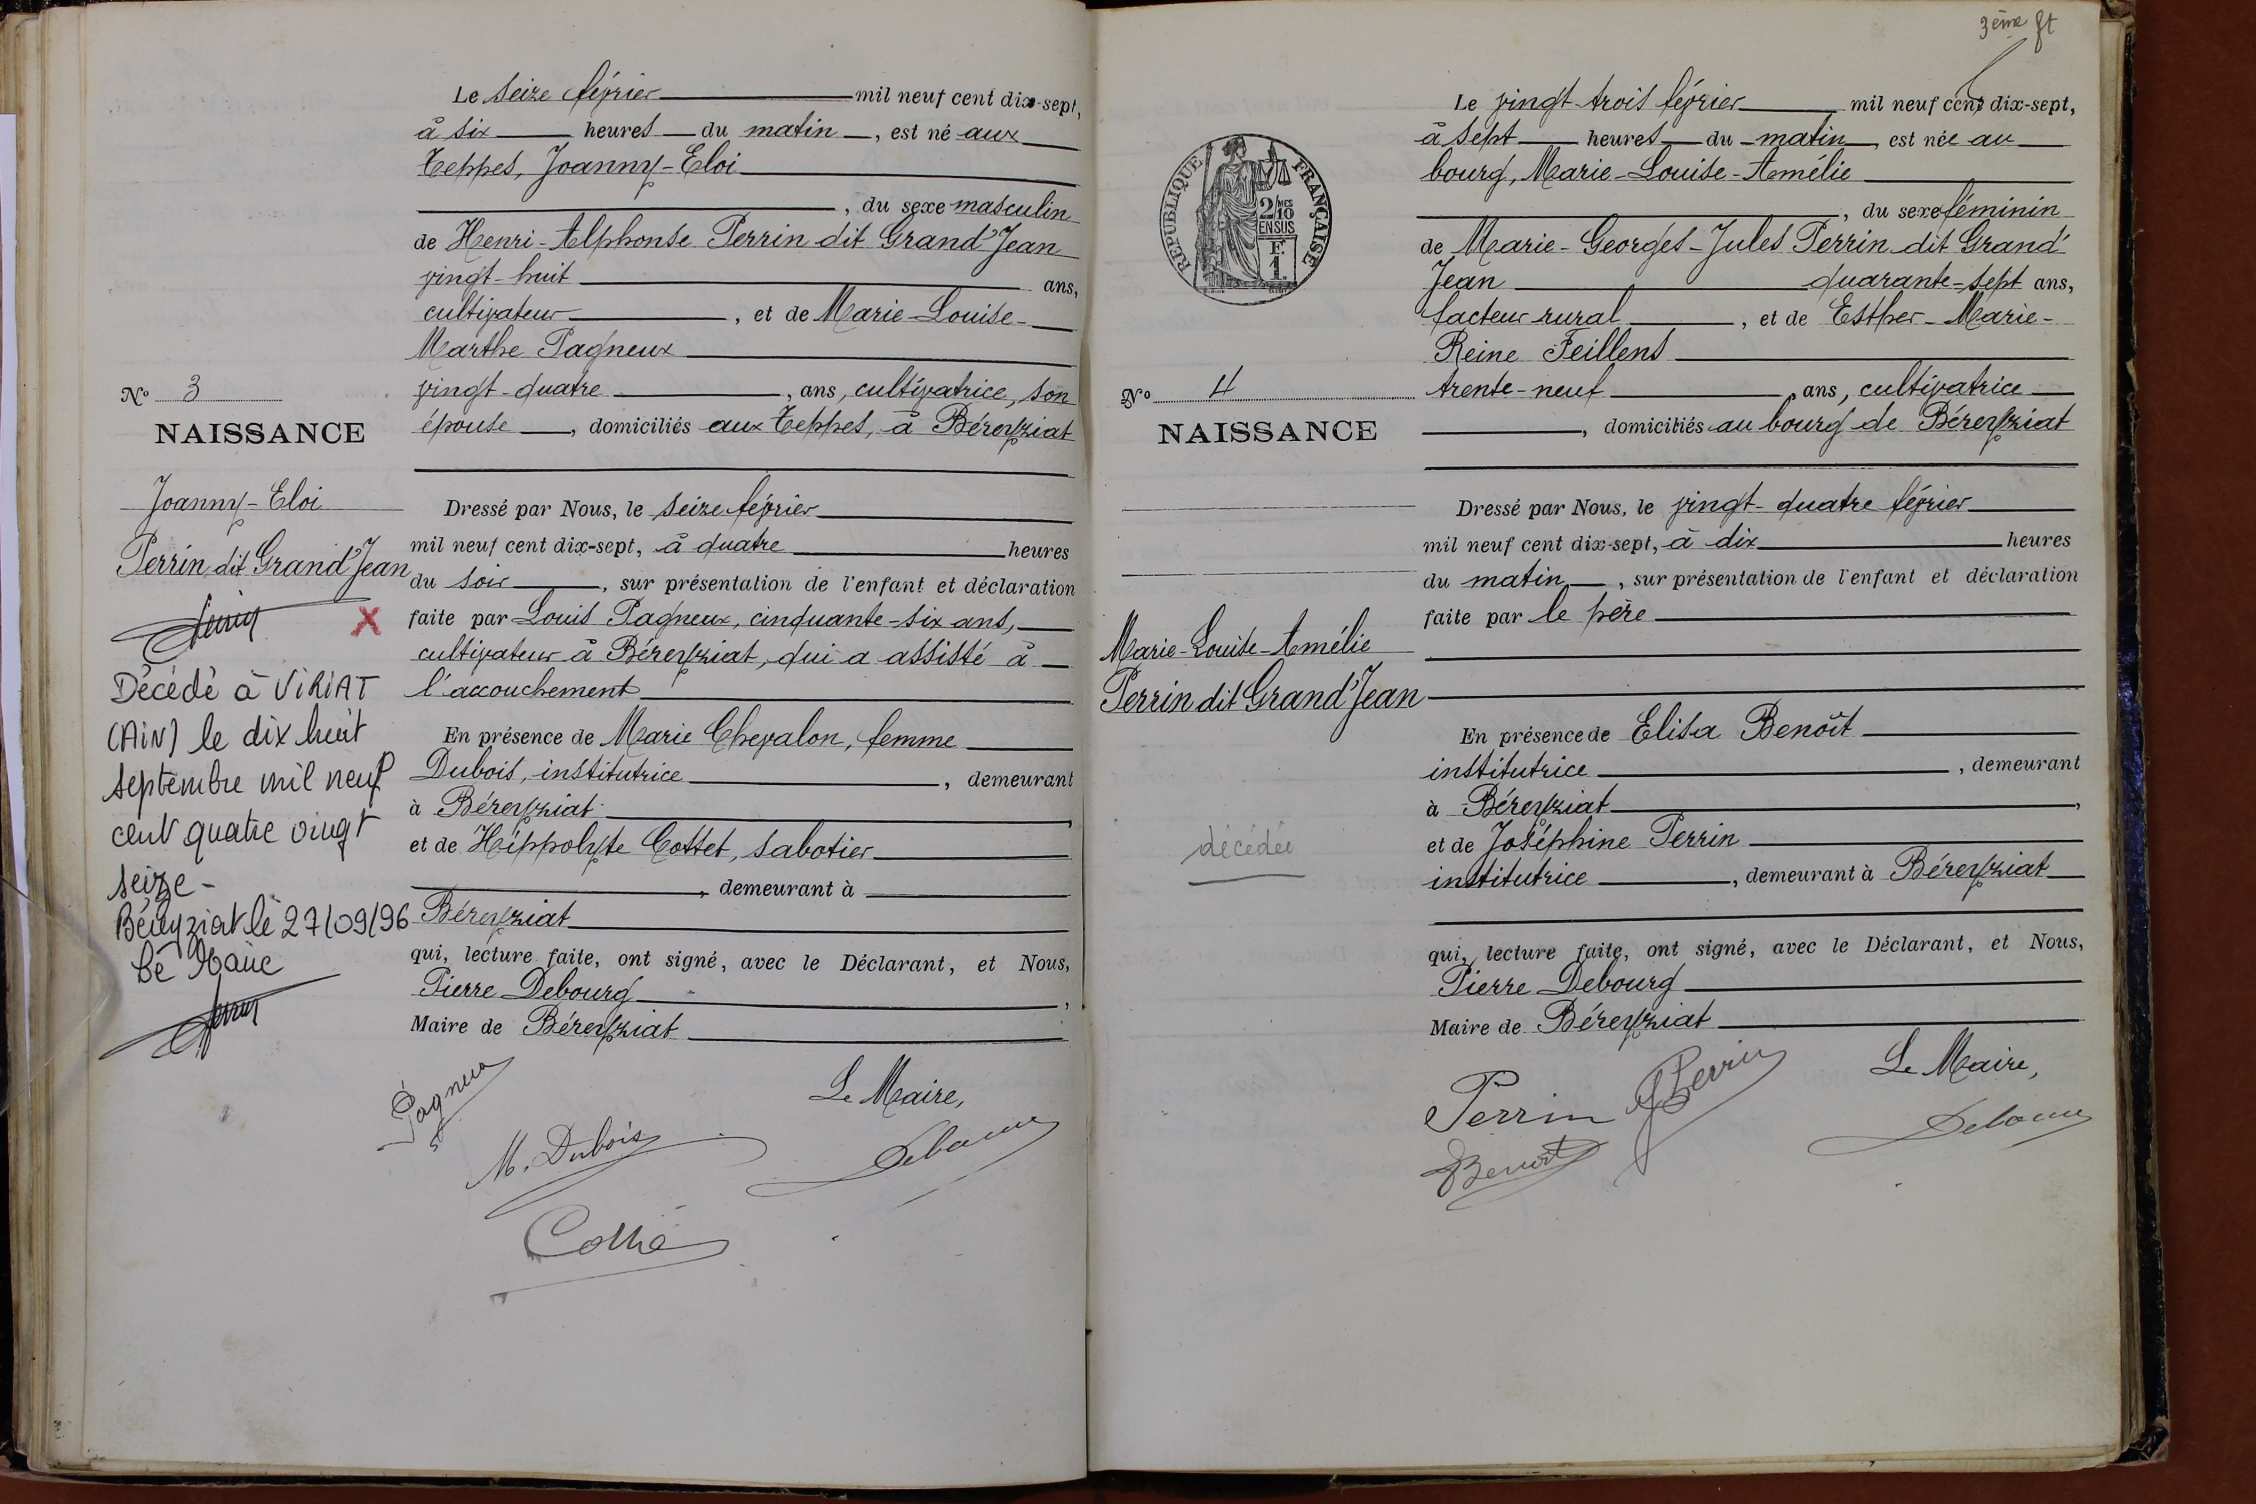 Le seize février mil neuf cent dix-sept,
à six heures du matin, est né aux
Teppes, Joanny-Eloi
, du sexe masculin
de Henri-Alphonse Perrin dit Grand'Jean
vingt-huit ans,
cultivateur, et de Marie-Louise-
Marthe Pagneux
vingt-quatre, ans, cultivatrice, son
épouse, domiciliés aux Teppes, à Béreyziat
No 3
NAISSANCE
Joanny-Eloi
Perrin dit Grand'Jean
X
Décédé à VIRIAT
(AIN) le dix huit
septembre mil neuf
cent quatre vingt
seize -
Béreyziat le 27/09/96
Le Maire
Dressé par Nous, le seize février
mil neuf cent dix-sept, à quatre heures
du soir, sur présentation de l'enfant et déclaration
faite par Louis Pagneux, cinquante-six ans,
cultivateur à Béreyziat, qui a assisté à
l'accouchement
En présence de Marie Chevalon, femme
Dubois, institutrice, demeurant
à Béreyziat,
et de Hippolyte Cottet, sabotier
, demeurant à
Béreyziat
qui, lecture faite, ont signé, avec le Déclarant, et Nous,
Pierre Debourg,
Maire de Béreyziat
Le Maire,
Pagneux
M. Dubois
3ème ft
Le vingt-trois février mil neuf cent dix-sept,
à sept heures du matin, est née au
bourg, Marie-Louise-Amélie
, du sexe féminin
de Marie-Georges-Jules Perrin dit Grand'
Jean quarante-sept ans,
facteur rural, et de Esther-Marie-
Reine Feillens
trente-neuf, ans, cultivatrice
, domiciliés au bourg de Béreyziat
RÉPUBLIQUE FRANÇAISE
2/10 MES
EN SUS
F.
1.
No 4
NAISSANCE
Marie-Louise-Amélie
Perrin dit Grand'Jean
décédée
Dressé par Nous, le vingt-quatre février
mil neuf cent dix-sept, à dix heures
du matin, sur présentation de l'enfant et déclaration
faite par le père
En présence de Elisa Benoît
institutrice, demeurant
à Béreyziat,
et de Joséphine Perrin
institutrice, demeurant à Béreyziat
qui, lecture faite, ont signé, avec le Déclarant, et Nous,
Pierre Debourg
Maire de Béreyziat
Le Maire,
Perrin JPerrin
Benoit